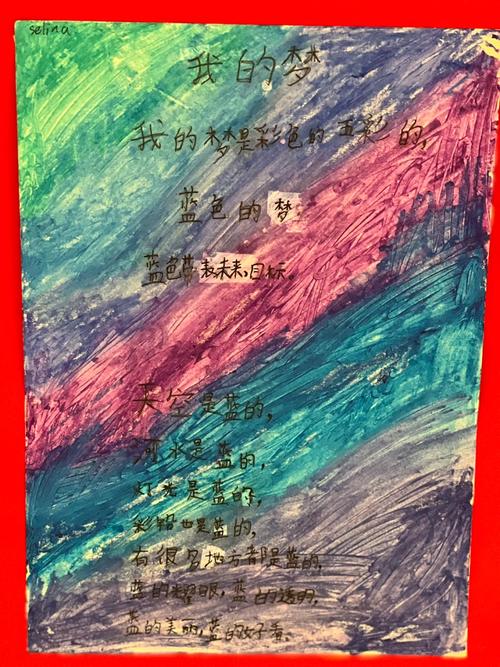 selina
我的梦
我的梦是彩色的五彩的,
蓝色的梦
蓝色代表未来,目标。
天空是蓝的,
河水是蓝的,
灯光是蓝的,
彩铅也是蓝的,
有很多地方都是蓝的,
蓝的耀眼,蓝的透明,
蓝的美丽,蓝的好看。